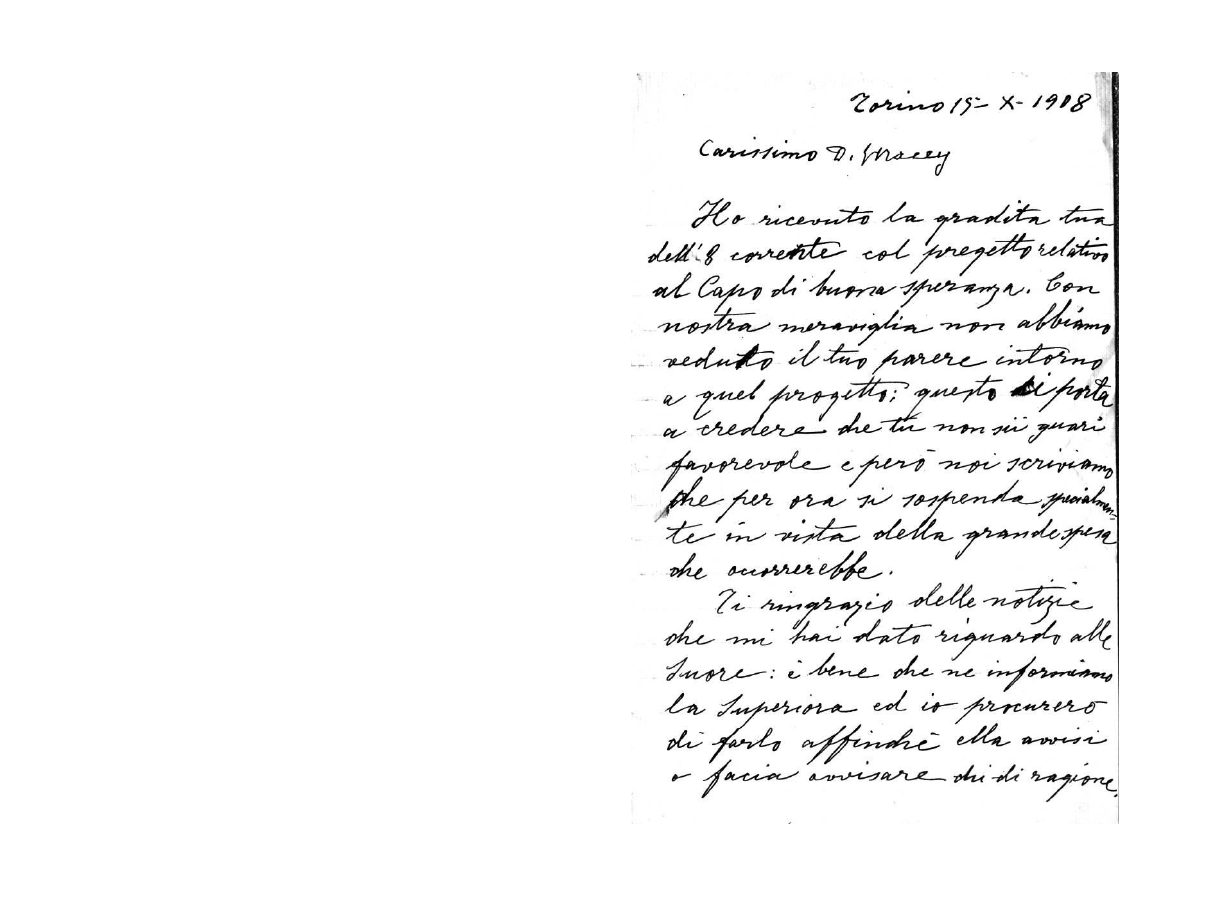 Torino 15- X- 1908
Carissimo D. Macey
Ho ricevuto la gradita tua
dell' 8 corrente col pregetto relativo
al Capo di buona speranza. Con
nostra meraviglia non abbiamo
veduto il tuo parere intorno
a quel progetto; questo ci porta
a credere che tu non sii guari
favorevole e però noi scriviamo
che per ora si sospenda specialmen-
te in vista della grande spesa
che ocorrerebbe.
Ti ringrazio delle notizie
che mi hai dato riguardo alle
Suore: è bene che ne informiamo
la Superiora ed io procurerò
di farlo affinchè ella avvisi
o facia avvisare chi di ragione.